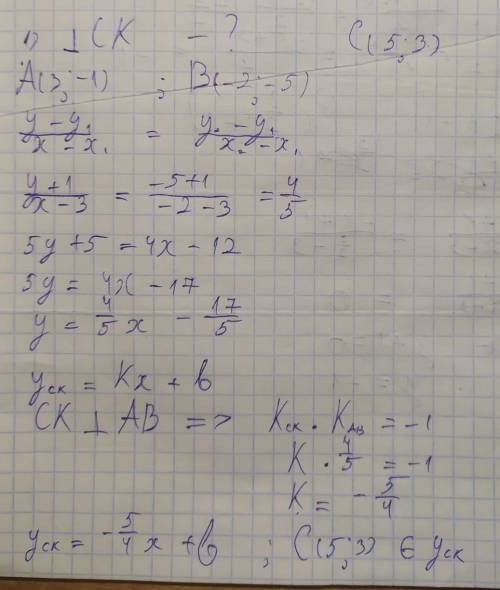 1) ⊥ CK — ? C(5;3)
A(3;-1) ; B(-2;-5)
(y - y₁)/(x - x₁) = (y₂ - y₁)/(x₂ - x₁)
(y+1)/(x-3) = (-5+1)/(-2-3) = 4/5
5y+5 = 4x - 12
5y = 4x - 17
y = 4/5 x - 17/5
yск = Kx + b
CK ⊥ AB => Kск · KАВ = -1
K · 4/5 = -1
K = - 5/4
yск = - 5/4 x + b ; C(5;3) ∈ yск